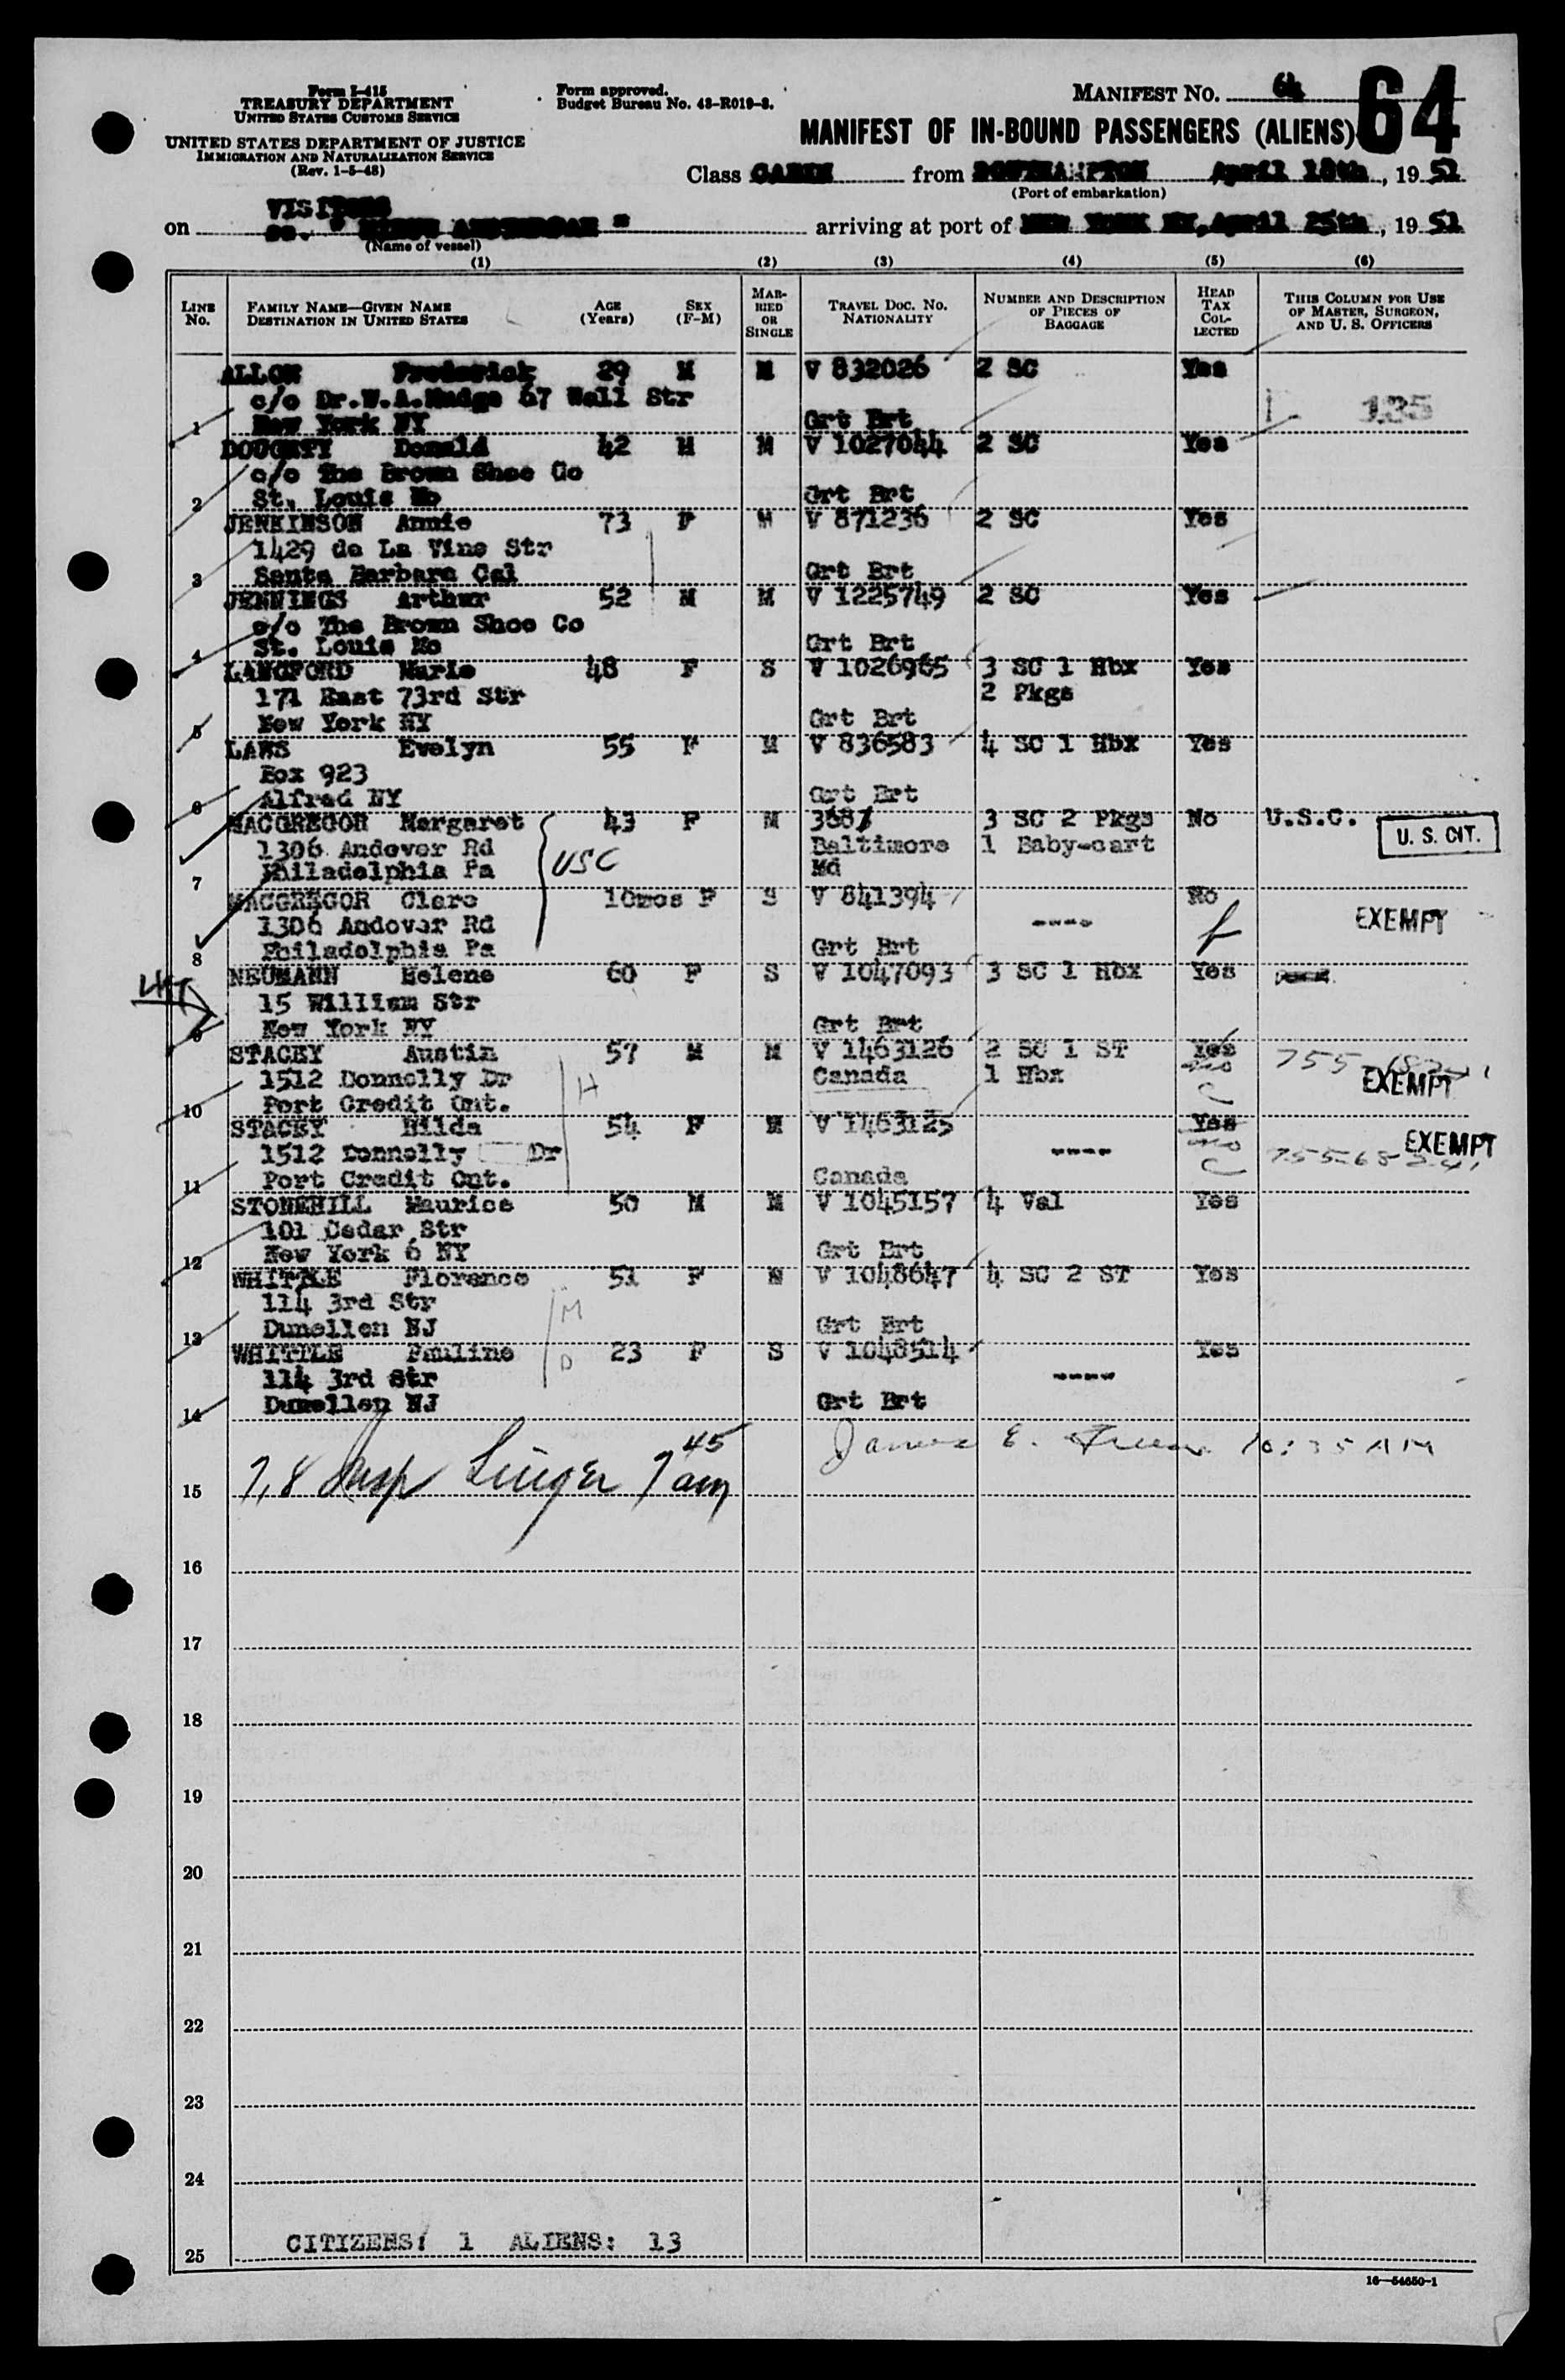 Form I-415
TREASURY DEPARTMENT
UNITED STATES CUSTOMS SERVICE
UNITED STATES DEPARTMENT OF JUSTICE
IMMIGRATION AND NATURALIZATION SERVICE
(Rev. 1-5-48)
Form approved.
Budget Bureau No. 43-R019-3.
MANIFEST NO. 64
64
MANIFEST OF IN-BOUND PASSENGERS (ALIENS)
Class CABIN from SOUTHAMPTON April 18th, 1952
(Port of embarkation)
VISITORS
on ss. " NIEUW AMSTERDAM " arriving at port of NEW YORK NY, April 25th, 1952
(Name of vessel)
(1) (2) (3) (4) (5) (6)
LINE No. FAMILY NAME—GIVEN NAME DESTINATION IN UNITED STATES AGE (Years) SEX (F-M) MARRIED OR SINGLE TRAVEL DOC. NO. NATIONALITY NUMBER AND DESCRIPTION OF PIECES OF BAGGAGE HEAD TAX COLLECTED THIS COLUMN FOR USE OF MASTER, SURGEON, AND U. S. OFFICERS
ALLON Frederick 29 M M V 832026 2 SC Yes
c/o Dr.W.A.Mudge 67 Wall Str 135
1 New York NY Grt Brt
DOUGHTY Donald 42 M M V 1027044 2 SC Yes
c/o The Brown Shoe Co
2 St. Louis Mo Grt Brt
JENKINSON Annie 73 F M V 871236 2 SC Yes
1429 de La Vine Str
3 Santa Barbara Cal Grt Brt
JENNINGS Arthur 52 M M V 1225749 2 SC Yes
c/o The Brown Shoe Co
4 St. Louis Mo Grt Brt
LANGFORD Marie 48 F S V 1026965 3 SC 1 Hbx Yes
171 East 73rd Str 2 Pkgs
5 New York NY Grt Brt
LAWS Evelyn 55 F M V 836583 4 SC 1 Hbx Yes
Box 923
6 Alfred NY Grt Brt
MACGREGOR Margaret 43 F M 3687 3 SC 2 Pkgs No U.S.C.
1306 Andover Rd USC Baltimore 1 Baby-cart U. S. CIT.
7 Philadelphia Pa Md
MACGREGOR Clare 10mos F S V 841394 No
1306 Andover Rd ---- EXEMPT
8 Philadelphia Pa Grt Brt
NEUMANN Helene 60 F S V 1047093 3 SC 1 Hbx Yes
15 William Str
9 New York NY Grt Brt
STACEY Austin 57 M M V 1463126 2 SC 1 ST Yes
1512 Donnelly Dr H Canada 1 Hbx No EXEMPT
10 Port Credit Ont. C
STACEY Hilda 54 F M V 1463125 Yes
1512 Donnelly Dr ---- No EXEMPT
11 Port Credit Ont. Canada C
STONEHILL Maurice 50 M M V 1045157 4 Val Yes
101 Cedar Str
12 New York 6 NY Grt Brt
WHITTLE Florence 51 F M V 1048647 4 SC 2 ST Yes
114 3rd Str M
13 Dunellen NJ Grt Brt
WHITTLE Pauline 23 F S V 1048514 Yes
114 3rd Str D ----
14 Dunellen NJ Grt Brt
James E. 10:35 AM
15 7,8 Insp Singer 7 45 am
16
17
18
19
20
21
22
23
24
25 CITIZENS: 1 ALIENS: 13
16—54650-1